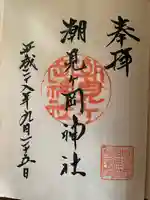 奉拝
潮見ヶ岡神社
平成二十八年九月二十五日